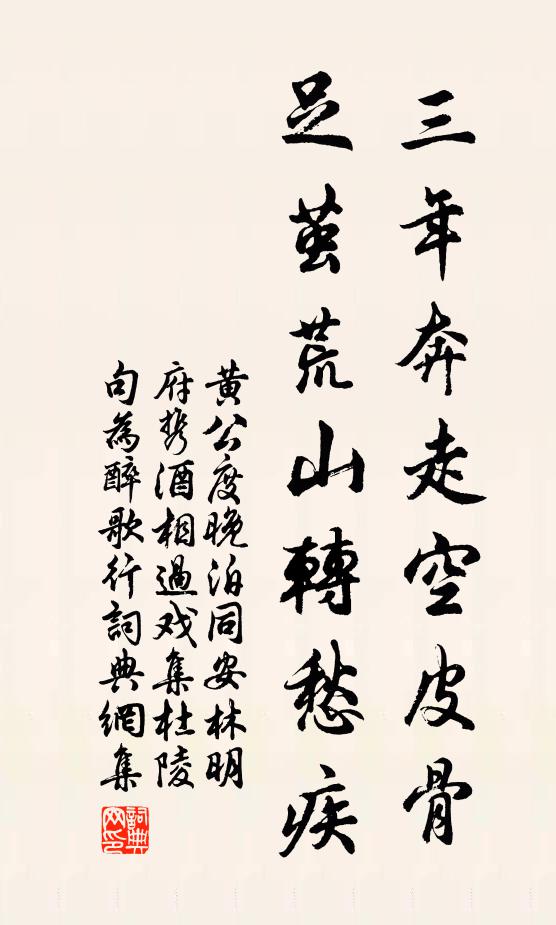 三年奔走空皮骨
足茧荒山轉愁疾
黄公度晚泊同安林明
府携酒相過戏集杜陵
句為醉歌行詞典網集
詞典網印